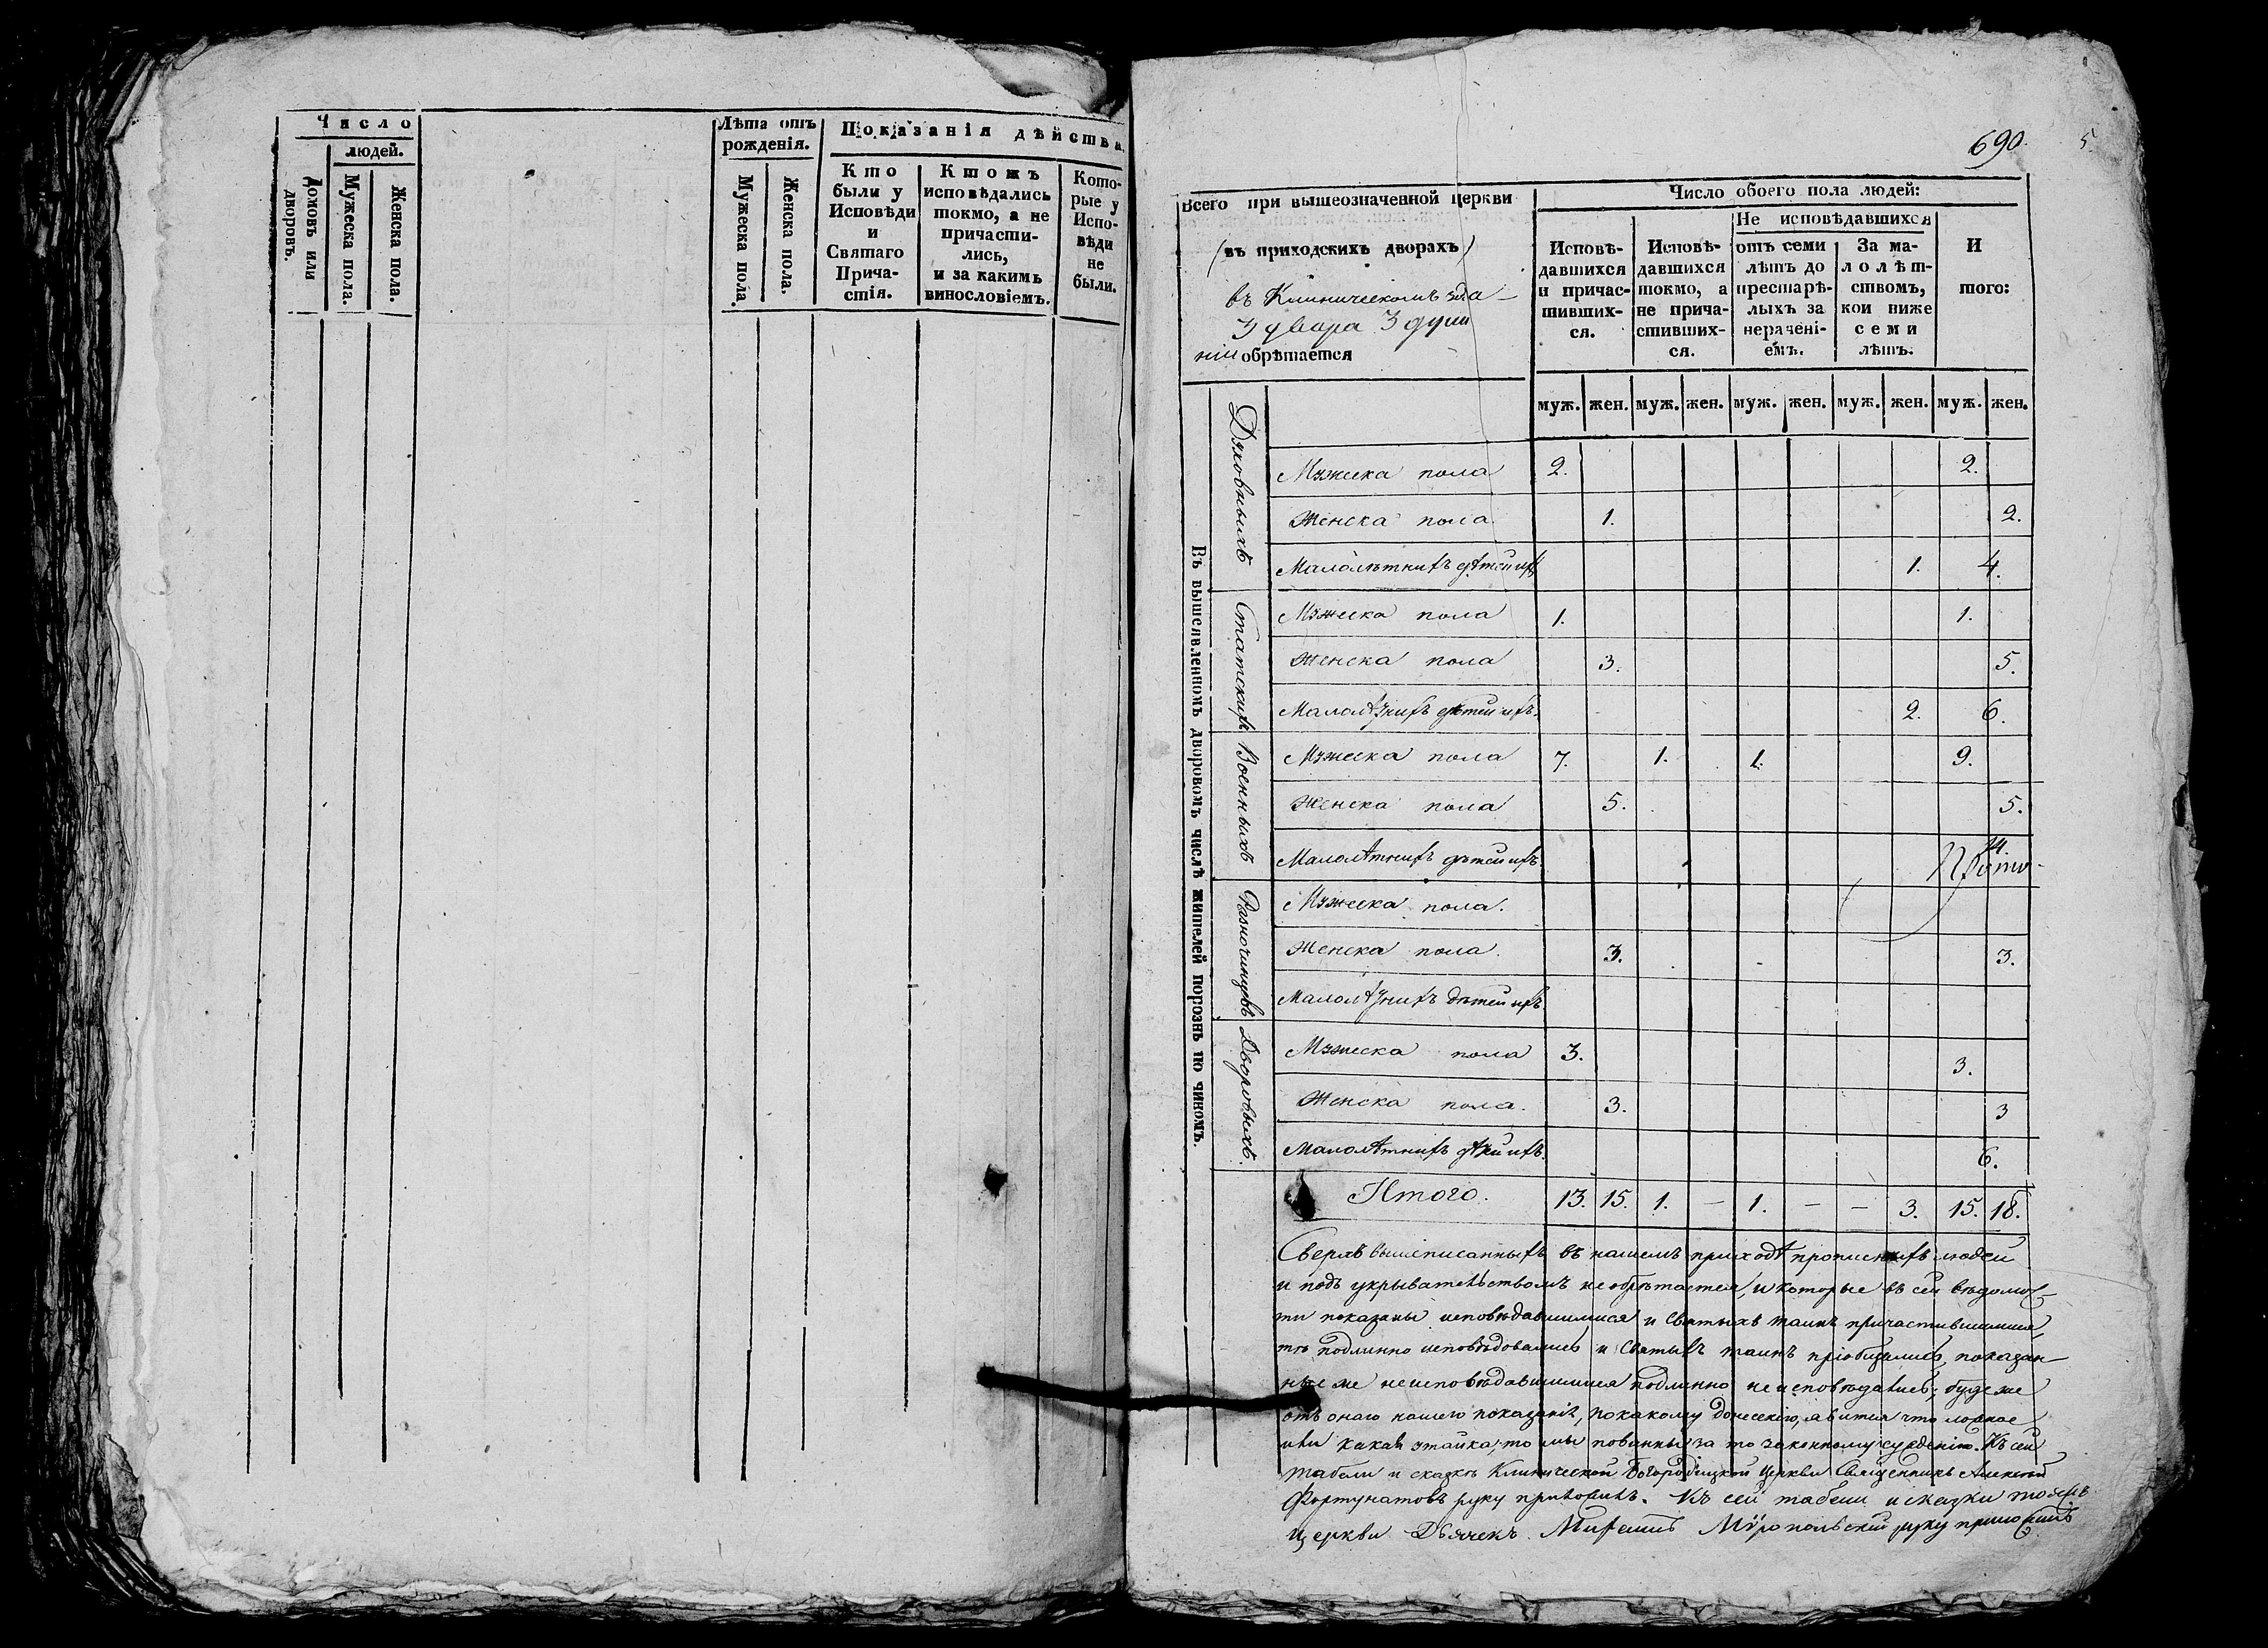 Число
людей.
Домовъ или дворовъ.
Мужеска пола.
Женска пола.
Лѣта отъ рожденія.
Мужеска пола.
Женска пола.
Показанія дѣйства.
Кто были у Исповѣди и Святаго Причастія.
Ктожъ исповѣдались токмо, а не причастились, и за какимъ винословіемъ.
Которые у Исповѣди не были.
690.
5.
Всего при вышеозначенной церкви
(въ приходскихъ дворахъ)
въ Клиническомъ зда-
3 двора 3 души
ніи обрѣтается
Число обоего пола людей:
Исповѣдавшихся и причастившихся.
Исповѣдавшихся токмо, а не причастившихся.
Не исповѣдавшихся
отъ семи лѣтъ до престарѣлыхъ за нераченіемъ.
За малолѣтствомъ, кои ниже семи лѣтъ.
И того:
муж. жен. муж. жен. муж. жен. муж. жен. муж. жен.
Въ вышеявленномъ дворовомъ числѣ жителей порознь по чиномъ.
Духовныхъ
Мужеска пола 2. 2.
Женска пола 1. 2.
Малолѣтнихъ дѣтей ихъ 1. 4.
Статскихъ
Мужеска пола 1. 1.
Женска пола 3. 5.
Малолѣтнихъ дѣтей ихъ. 2. 6.
Военныхъ
Мужеска пола 7. 1. 1. 9.
Женска пола 5. 5.
Малолѣтнихъ дѣтей ихъ. 14.
Разночинцевъ
Мужеска пола.
Женска пола. 3. 3.
Малолѣтнихъ дѣтей ихъ
Дворовыхъ.
Мужеска пола 3. 3.
Женска пола. 3. 3
Малолѣтнихъ дѣтей ихъ. 6.
Итого. 13. 15. 1. – 1. – – 3. 15. 18.
Сверхъ вышеписанныхъ въ нашемъ приходѣ прописныхъ людей
и подъ укрывательствомъ не обрѣтается, и которые въ сей вѣдомос-
ти показаны исповѣдавшимися и Святыхъ таинъ причастившимися,
тѣ подлинно исповѣдовались и Святыхъ таинъ пріобщались, показан-
ные же неисповѣдавшимися подлинно не исповѣдались; буде же
отъ онаго нашего показанія, по какому донесенію, явится что ложное
или какая утайка, то мы повинны за то законному сужденію. Къ сей
табели и сказкѣ Клинической Богородицкой церкви Священникъ Алексей
Фортунатовъ руку приложилъ. Къ сей табели и сказки тоежъ
церкви Дьячекъ Михаилъ Миропольскій руку приложилъ